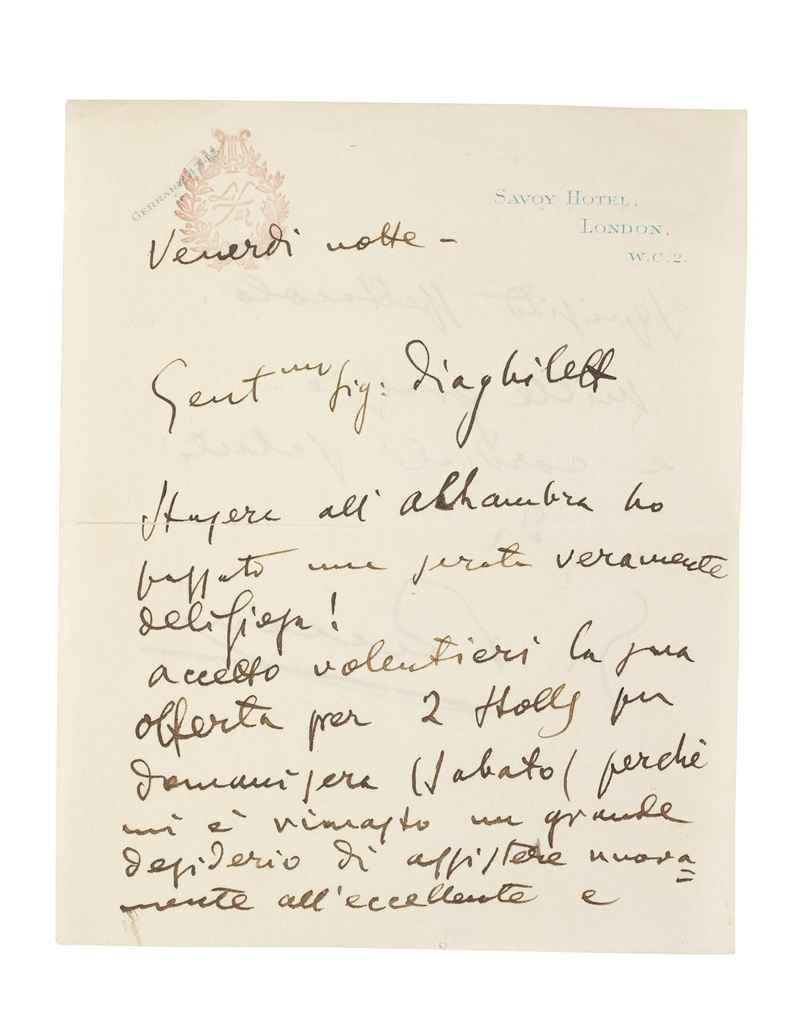 SAVOY HOTEL,
LONDON,
W.C.2.
Venerdi notte –
Gent mo Sig: Diaghileff
Stasera all' alhambra ho
passato una serata veramente
deliziosa!
accetto volentieri la sua
offerta per 2 Stalls per
domani sera (Sabato( perchè
mi è rimasto un grande
desiderio di assistere nuova=
mente all'eccellente e